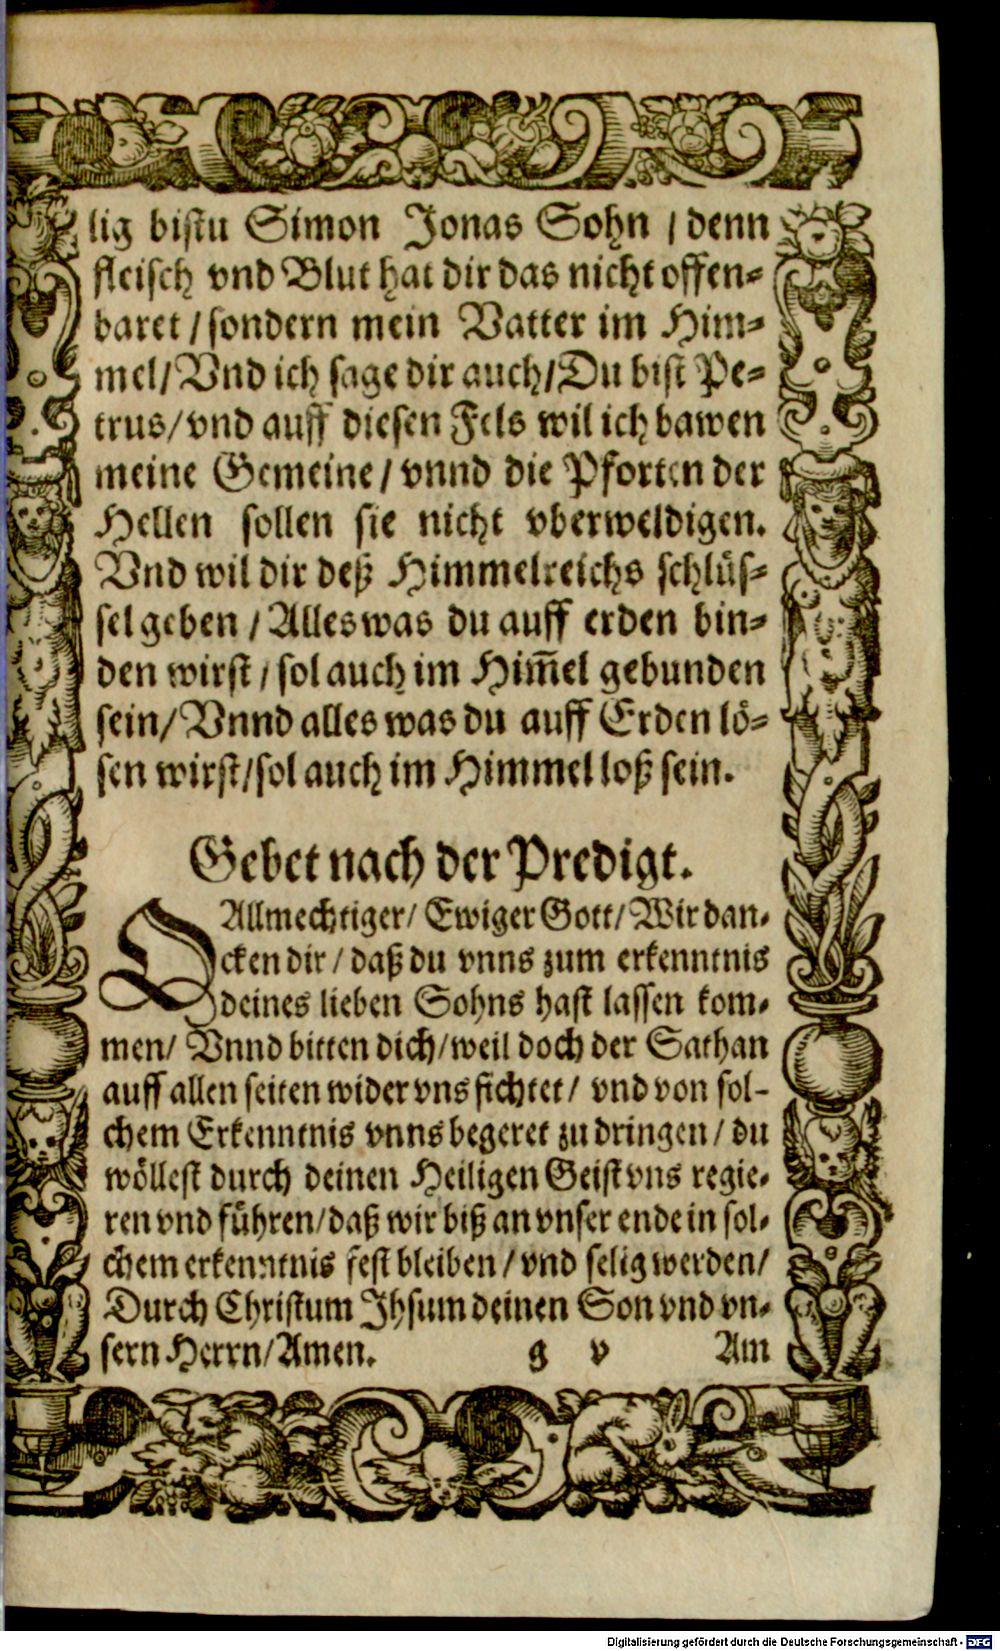 lig bistu Simon Jonas Sohn / denn
fleisch vnd Blut hat dir das nicht offen-
baret / sondern mein Vatter im Him-
mel / Vnd ich sage dir auch / Du bist Pe-
trus / vnd auff diesen Fels wil ich bawen
meine Gemeine / vnnd die Pforten der
Hellen sollen sie nicht vberweldigen.
Vnd wil dir deß Himmelreichs schlüs-
sel geben / Alles was du auff erden bin-
den wirst / sol auch im Him̅el gebunden
sein / Vnnd alles was du auff Erden lö-
sen wirst / sol auch im Himmel loß sein.
Gebet nach der Predigt.
O Allmechtiger / Ewiger Gott / Wir dan-
cken dir / daß du vnns zum erkenntnis
deines lieben Sohns hast lassen kom-
men / Vnnd bitten dich / weil doch der Sathan
auff allen seiten wider vns fichtet / vnd von sol-
chem Erkenntnis vnns begeret zu dringen / du
wöllest durch deinen Heiligen Geist vns regie-
ren vnd führen / daß wir biß an vnser ende in sol-
chem erkenntnis fest bleiben / vnd selig werden /
Durch Christum Jhsum deinen Son vnd vn-
sern Herrn / Amen. g v Am
Digitalisierung gefördert durch die Deutsche Forschungsgemeinschaft - DFG